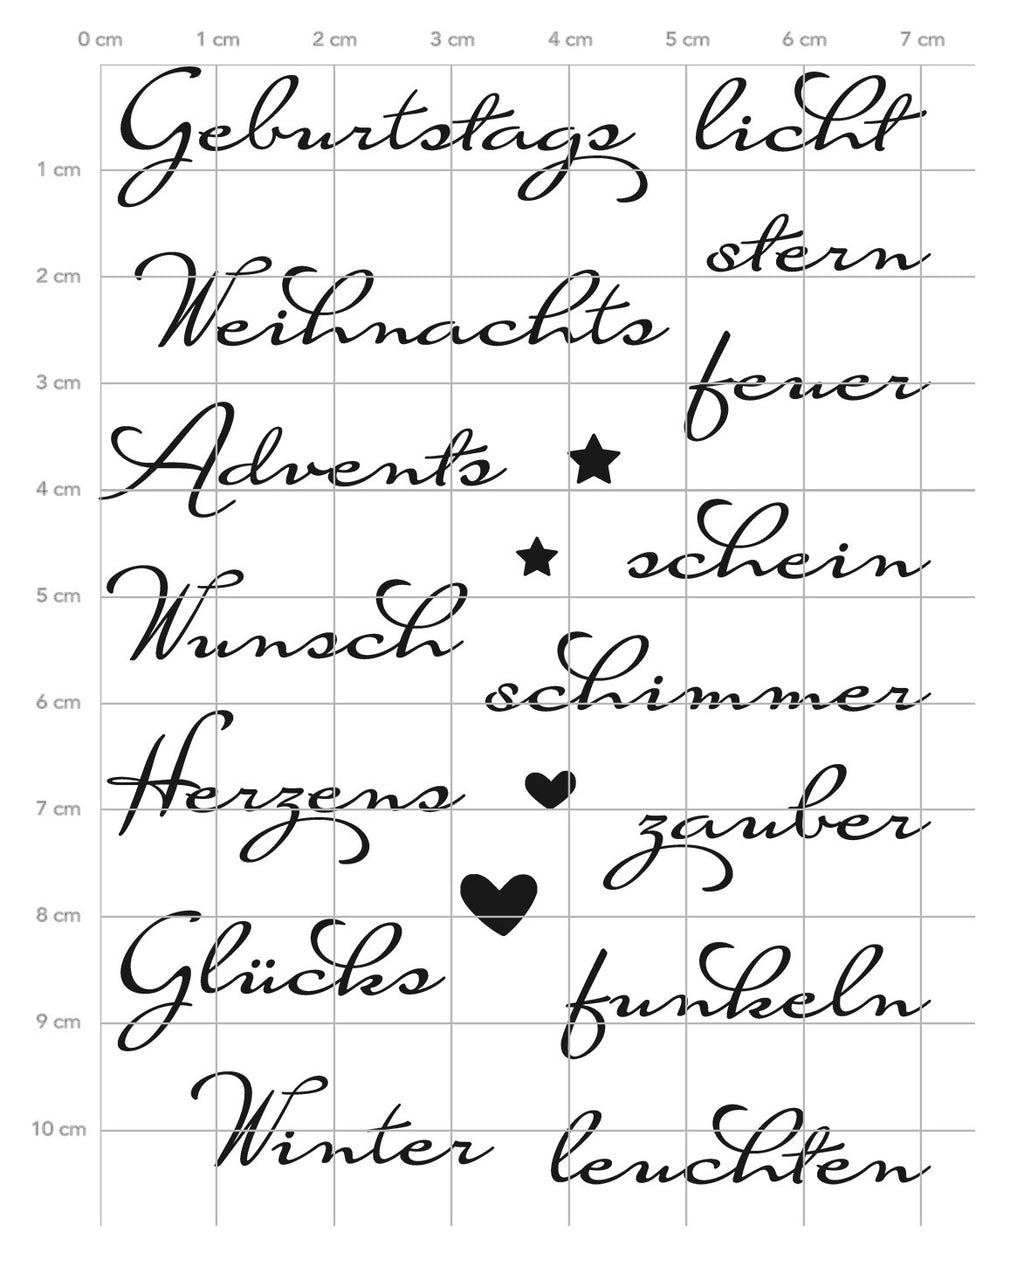 0 cm 1 cm 2 cm 3 cm 4 cm 5 cm 6 cm 7 cm
Geburtstags licht
1 cm
stern
2 cm
Weihnachts
feuer
3 cm
Advents
4 cm
schein
5 cm
Wunsch
schimmer
6 cm
Herzens
7 cm
zauber
8 cm
Glücks
funkeln
9 cm
10 cm
Winter
leuchten